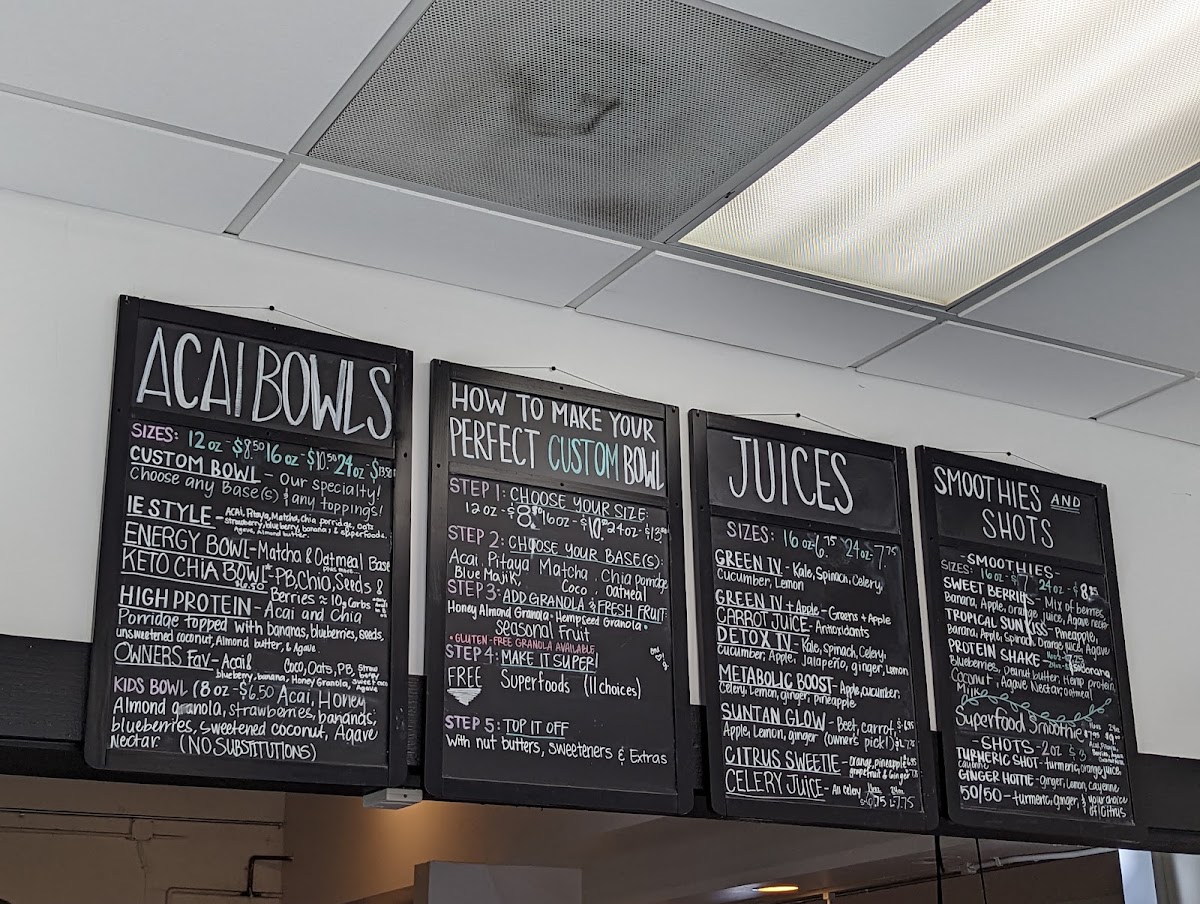 ACAI BOWLS
SIZES: 12 oz - $8.50 16 oz - $10.50 24 oz - $13.50
CUSTOM BOWL - Our specialty!
Choose any Base(s) & any toppings!
IE STYLE - Acai, Pitaya, Matcha, Chia porridge, oats
strawberry, blueberry, bananas & superfoods.
Agave, Almond butter.
ENERGY BOWL - Matcha & Oatmeal Base
KETO CHIA BOWL* - PB, Chia, Seeds &
Berries ≈ 10g Carbs
HIGH PROTEIN - Acai and Chia
Porridge topped with bananas, blueberries, seeds,
unsweetened coconut, Almond butter, & Agave
OWNERS FAV - Acai, Coco, Oats, PB, Straw
blueberry, banana, Honey Granola, sweet coco
Agave
KIDS BOWL (8 oz - $6.50 Acai, Honey
Almond granola, strawberries, bananas,
blueberries, sweetened coconut, Agave
Nectar. (NO SUBSTITUTIONS)
HOW TO MAKE YOUR
PERFECT CUSTOM BOWL
STEP 1: CHOOSE YOUR SIZE:
12 oz - $8.50 16 oz - $10.50 24 oz - $13.50
STEP 2: CHOOSE YOUR BASE(S):
Acai, Pitaya Matcha, Chia porridge
Blue Majik, Coco, Oatmeal
STEP 3: ADD GRANOLA & FRESH FRUIT:
Honey Almond Granola · Hempseed Granola ·
seasonal Fruit
*GLUTEN-FREE GRANOLA AVAILABLE
STEP 4: MAKE IT SUPER!
FREE Superfoods (11 choices)
STEP 5: TOP IT OFF
With nut butters, sweeteners & Extras
JUICES
SIZES: 16 oz - 6.75 24 oz - 7.75
GREEN IV - Kale, Spinach, Celery
Cucumber, Lemon
GREEN IV + Apple - Greens + Apple
CARROT JUICE - Antioxidants
DETOX IV - Kale, Spinach, Celery,
Cucumber, Apple, Jalapeño, ginger, Lemon
METABOLIC BOOST - Apple, cucumber,
Celery, Lemon, ginger, pineapple
SUNTAN GLOW - Beet, carrot,
Apple, Lemon, ginger (owners pick!)
CITRUS SWEETIE - orange, pineapple
grapefruit & Ginger
CELERY JUICE - All Celery 16oz 24oz
6.75 7.75
SMOOTHIES AND
SHOTS
- SMOOTHIES -
SIZES: 16 oz - $7 24 oz - $8
SWEET BERRIES - Mix of berries,
Banana, Apple, orange juice, Agave nectar
TROPICAL SUN KISS - Pineapple,
Banana, Apple, Spinach, Orange juice, Agave
PROTEIN SHAKE - Banana,
Blueberries, Peanut butter, Hemp protein,
Coconut, Agave Nectar, oatmeal
Milk
Superfood Smoothie
- SHOTS - 2 oz $3
TURMERIC SHOT - turmeric, orange juice,
cayenne
GINGER HOTTIE - ginger, Lemon, cayenne
50/50 - turmeric, ginger, & your choice
of Citrus